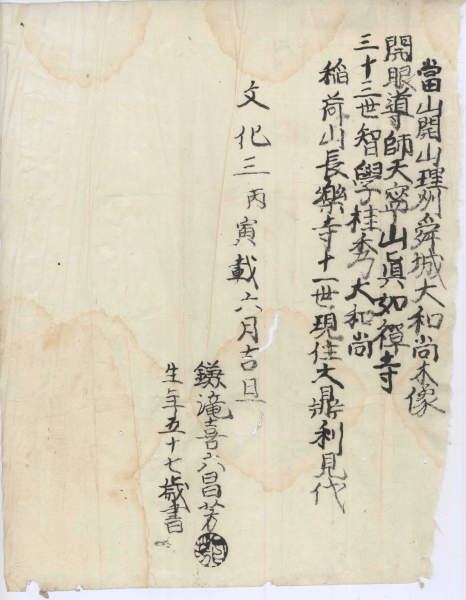 當山開山理州舜城大和尚木像
開眼導師天寧山眞如禅寺
三十三世智學桂秀大和尚
稲荷山長樂寺十一世現住大鼎利見代
文化三丙寅載六月吉旦
鎌滝喜六昌芳
生年五十七歳書